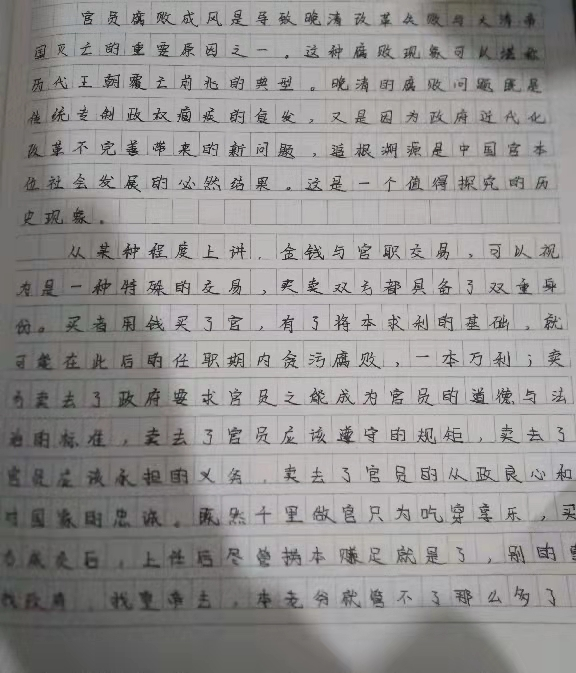 官员腐败成风是导致晚清改革失败与大清帝
国灭亡的重要原因之一。这种腐败现象可以堪称
历代王朝覆亡前兆的典型。晚清的腐败问题既是
传统专制政权痼疾的复发，又是因为政府近代化
改革不完善带来的新问题，追根溯源是中国官本
位社会发展的必然结果。这是一个值得探究的历
史现象。
从某种程度上讲，金钱与官职交易，可以视
为是一种特殊的交易，买卖双方都具备了双重身
份。买者用钱买了官，有了将本求利的基础，就
可能在此后的任职期内贪污腐败，一本万利；卖
方卖去了政府要求官员之能成为官员的道德与法
治的标准，卖去了官员应该遵守的规矩，卖去了
官员应该承担的义务，卖去了官员的从政良心和
对国家的忠诚。既然千里做官只为吃穿享乐，买
卖成交后，上任后尽管捞本赚足就是了，别的
找政府，找皇帝去，本老爷就管不了那么多了